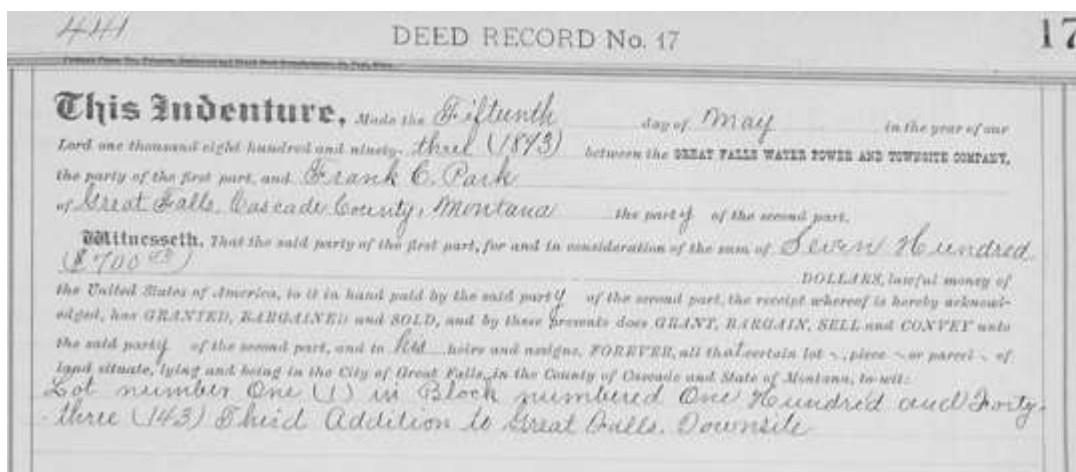 441 DEED RECORD No. 17 17
This Indenture, Made the Fifteenth day of May in the year of our
Lord one thousand eight hundred and ninety- three (1893) between the GREAT FALLS WATER POWER AND TOWNSITE COMPANY,
the party of the first part, and Frank C. Park
of Great Falls, Cascade County, Montana the party of the second part.
Witnesseth, That the said party of the first part, for and in consideration of the sum of Seven Hundred
($700 00) DOLLARS, lawful money of
the United States of America, to it in hand paid by the said party of the second part, the receipt whereof is hereby acknowl-
edged, has GRANTED, BARGAINED and SOLD, and by these presents does GRANT, BARGAIN, SELL and CONVEY unto
the said party of the second part, and to his heirs and assigns, FOREVER, all that certain lot , piece or parcel of
land situate, lying and being in the City of Great Falls, in the County of Cascade and State of Montana, to-wit:
Lot number One (1) in Block numbered One Hundred and Forty-
three (143) Third Addition to Great Falls. Townsite